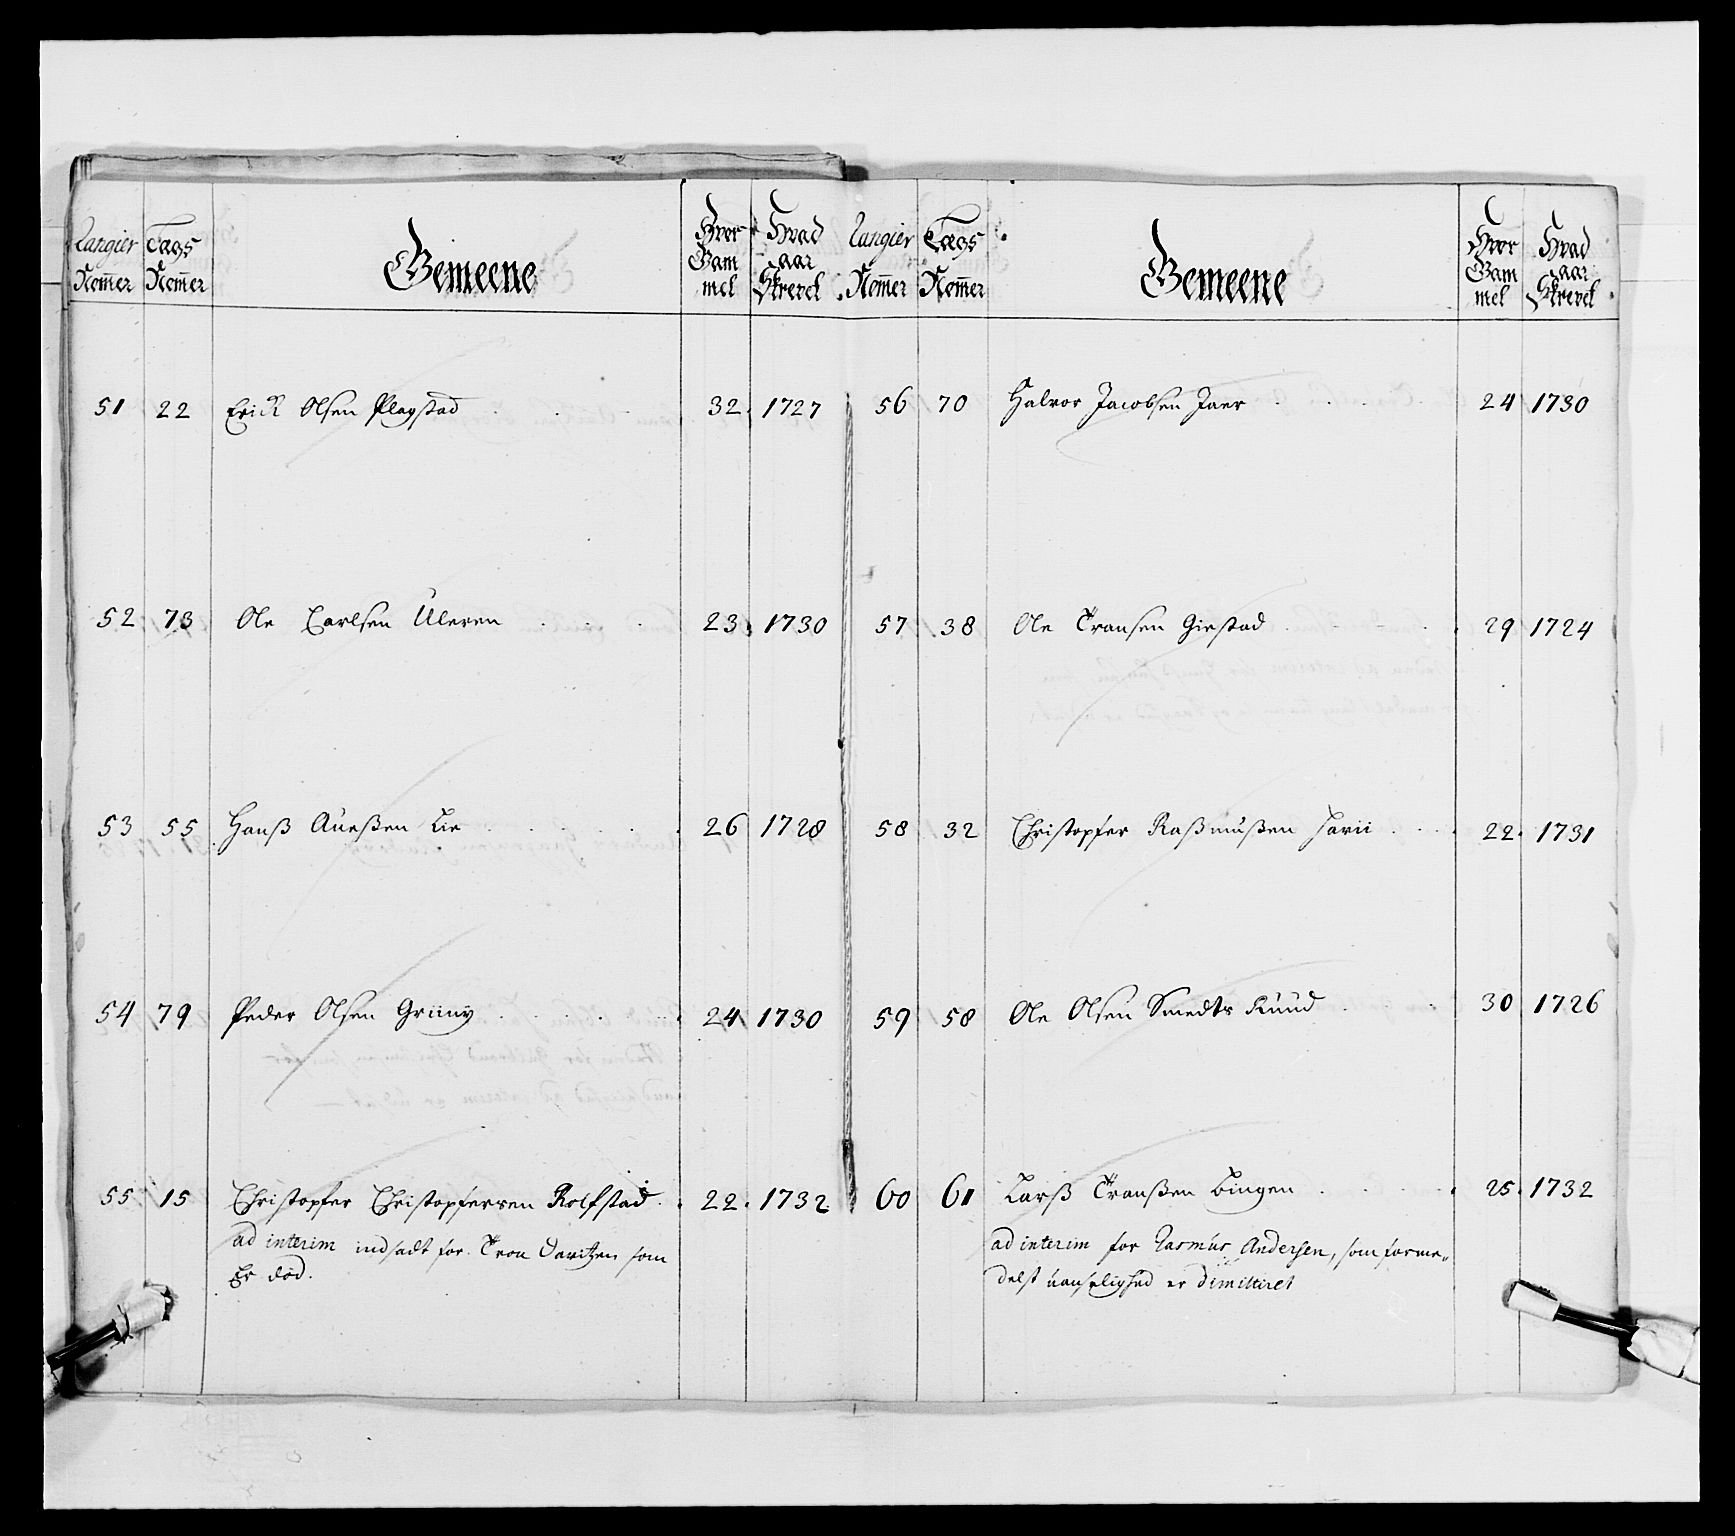 Rangier Nom̄er | Lægs Nom̄er | Gemeene | Hvor Gam mel | Hvad aar Skrevet
51 | 22 | Erick Olsen Plagstad | 32 | 1727
52 | 73 | Ole Carlsen Uleren | 23 | 1730
53 | 55 | Hanß Aueßen Lie | 26 | 1728
54 | 79 | Peder Olsen Griiny | 24 | 1730
55 | 15 | Christopfer Christopfersen Rolfstad | 22 | 1732
ad interim indsadt for Tron Davitzen som
Er død.
Rangier Nom̄er | Lægs Nom̄er | Gemeene | Hvor Gam mel | Hvad aar Skrevet
56 | 70 | Halvor Jacobsen Jaer | 24 | 1730
57 | 38 | Ole Transen Giestad | 29 | 1724
58 | 32 | Christopfer Raßmußen Jarii | 22 | 1731
59 | 58 | Ole Olsen Smedts Ruud | 30 | 1726
60 | 61 | Larß Tranßen Bingen | 25 | 1732
ad interim for Rasmus Andersen, som forme-
delst uanselighed er Dimitteret